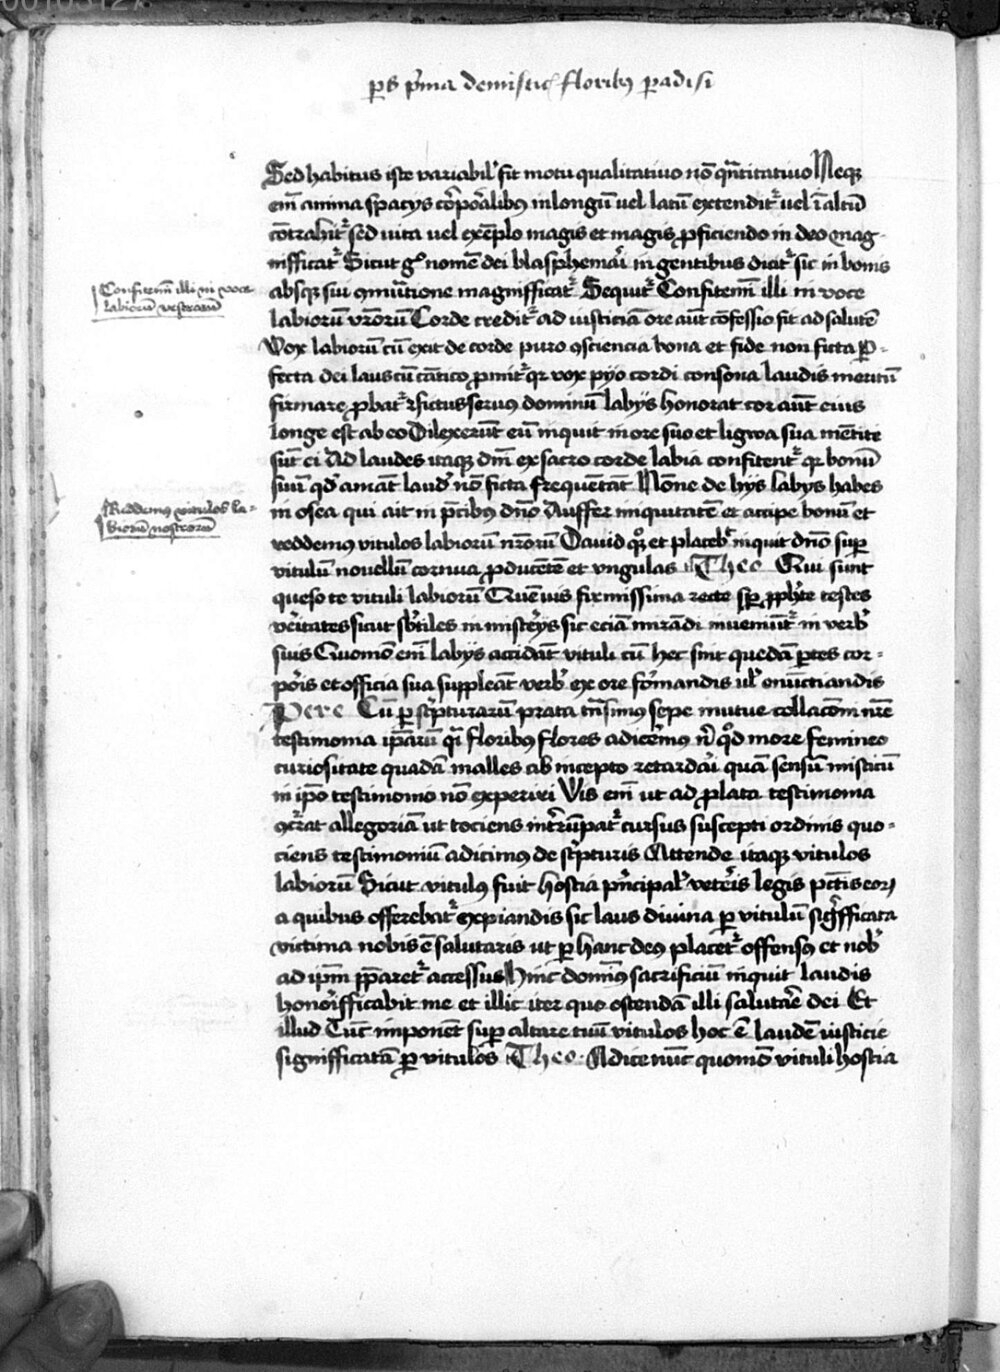 ps p̄ma de misticꝭ floribꝰ padisi
Sed habitus iste variabil' sit motu qualitatiuo nō q̄ntitatiuo Neqꝫ
em̄ anima spacijs cōrpōalibꝰ in longū uel latū extendit᷑ uel ī altū
cōtrahit᷑ sed uita uel exēplo magis et magis ꝓficiendo in deo mag-
nifficat᷑ Sicut gͦ nomē dei blasphemāi in gentibus dicit᷑ sic in bonis
absqꝫ sui ꝯmutōne magnifficat᷑ Sequit᷑ Confitemī illi in voce
Confitemī illi in voce
labiorū vestrorū
labiorū vr̄orū Corde credit᷑ ad iusticiā ore aūt cōfessio fit ad salutē
Vox labiorū cū exit de corde puro ꝯsciencia bona et fide non ficta ꝑ-
fecta dei laus cū cātico ꝓmit᷑ qꝛ vox pijo cordi consona laudis meritū
firmare ꝓbat᷑ fictus seruꝰ dominū labijs honorat cor aūt eius
longe est ab eo Dilexerūt eū inquit in ore suo et ligwa sua mētite
sūt ei Ad laudes itaqꝫ dm̄ ex sacro corde labia confitent᷑ qꝛ bonū
suū qd' amāt laud' nō ficta frequētāt Nōne de hijs labijs habes
Reddemus vitulos la-
biorū nostrorū
in osea qui ait in p̄cibus dn̄o Auffer iniquitatē et accipe bonū et
reddemꝰ vitulos labiorū nr̄orū Dauid qꝫ et placeb' inquit dn̄o suꝑ
vitulū nouellū cornua ꝓducētē et vngulas Theo Qui sunt
queso te vituli labiorū Quē uis firmissima recte testes
vēitates sicut sb'tiles in misterijs sic eciā mirādi inueniūt᷑ in verb'
suis Quomō em̄ labijs accidāt vituli cū hec sint quedā ꝑtes cor-
pōis et officia sua suppleāt verb' ex ore fōmandis ul' enūctiandis
Pere Cū ꝑ scpturarū prata trāsimus sepe mutue collacōm nr̄e
testimonia ip̄arū q̄i floribus flores adicēmus n̄ qd more femineo
curiositate quadā malles ab incepto retardāi quā sensū misticū
in ip̄o testimonio nō experiri Vis em̄ ut ad ꝓlata testimonia
ꝯcrat allegoriā ut tociens int'rūpat᷑ cursus suscepti ordinis quo-
ciens testimoniū adicimus de sc'pturis Attende itaqꝫ vitulos
labiorū Sicut vitulꝰ fuit hostia p'ncipal' vetēis legis pctīs eorꝫ
a quibus offerebat᷑ expiandis sic laus diuina ꝑ vitulū sigfficata
victima nobis ē salutaris ut ꝑ hanc deꝰ placet᷑ offensꝰ et nob'
ad ip̄m pparet᷑ accessus Hinc dominꝰ sacrificiū inquit laudis
honōifficabit me et illic iter quo ostendā illi salutāe dei Et
illud Tūc imponēt suꝑ altare tuū vitulos hoc ē laudē iusticie
significatā ꝑ vitulos Theo Adice nūc quomō vituli hostia